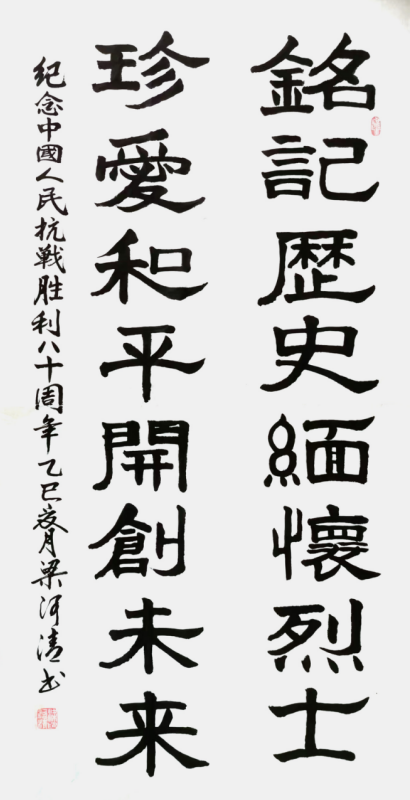 銘記歷史緬懷烈士
珍愛和平開創未来
纪念中國人民抗戰胜利八十周年乙巳夏月梁河清书